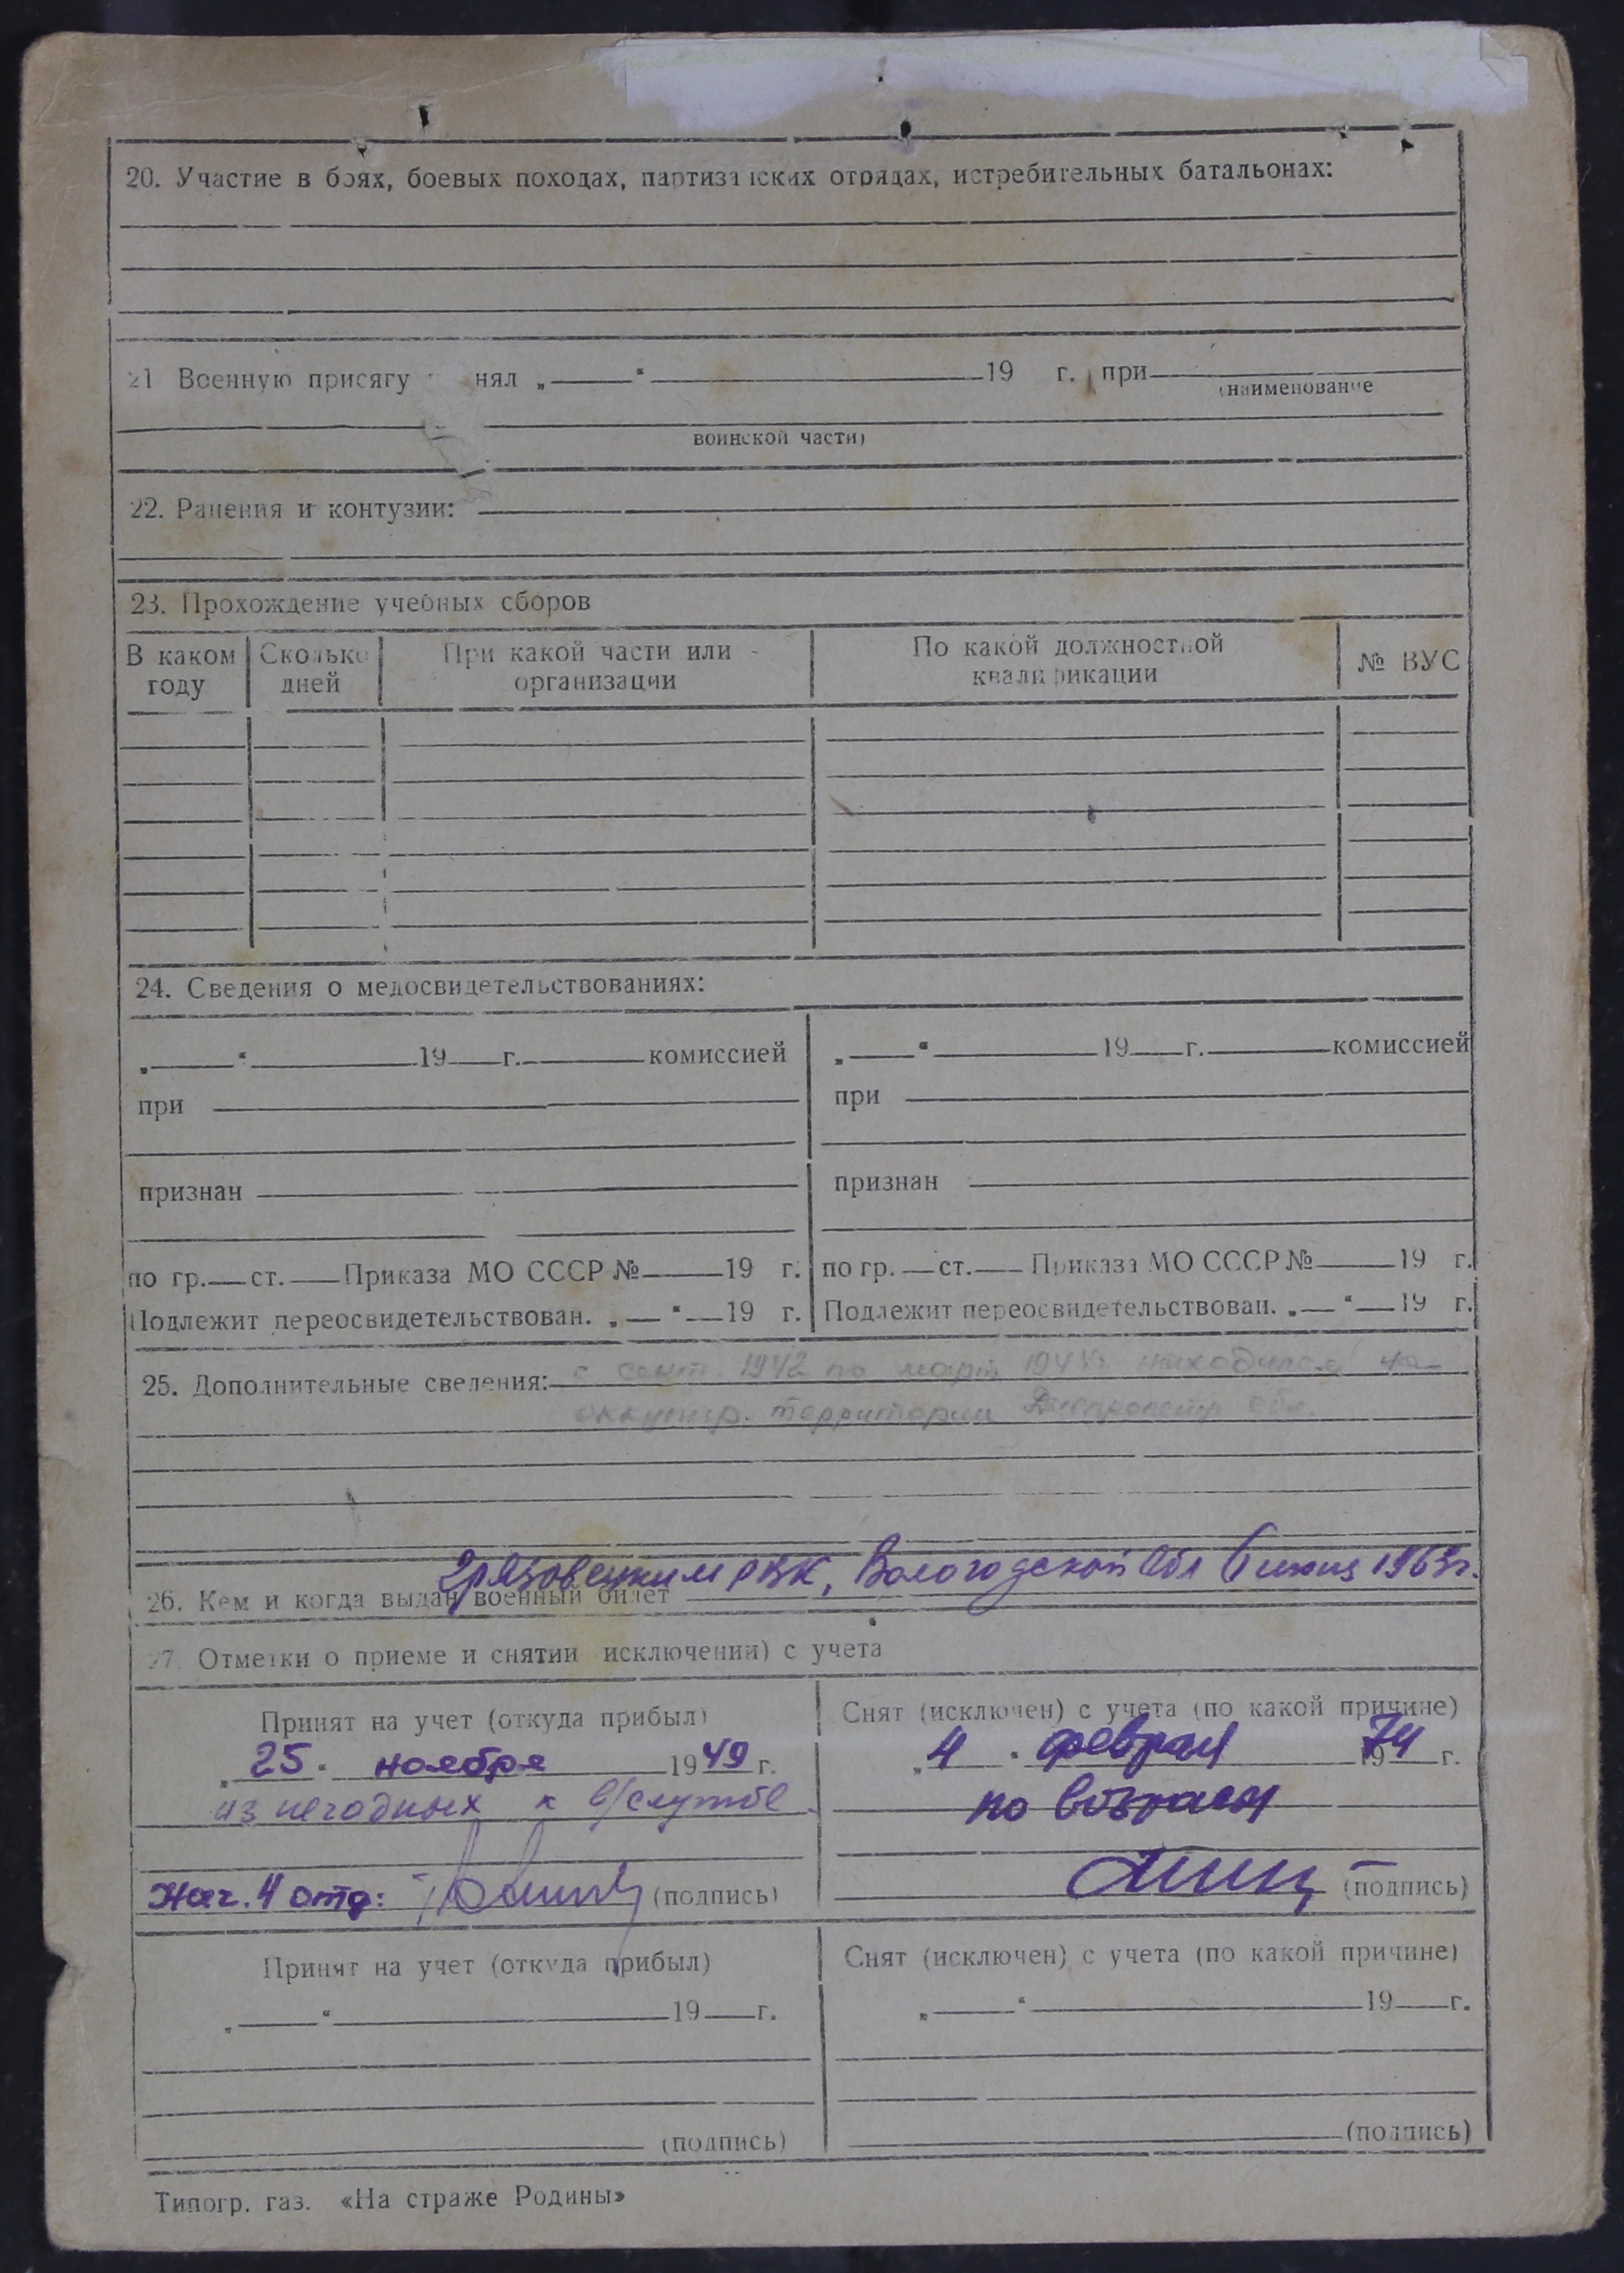 20. Участие в боях, боевых походах, партизанских отрядах, истребительных батальонах:
21 Военную присягу нял „ “ 19 г. при
(наименование
воинской части)
22. Ранения и контузии:
23. Прохождение учебных сборов
В каком году
Сколько дней
При какой части или организации
По какой должностной квалификации
№ ВУС
24. Сведения о медосвидетельствованиях:
„ “ 19 г. комиссией
при
признан
по гр. ст. Приказа МО СССР № 19 г.
Подлежит переосвидетельствован. „ “ 19 г.
„ “ 19 г. комиссией
при
признан
по гр. ст. Приказа МО СССР № 19 г.
Подлежит переосвидетельствован. „ “ 19 г.
25. Дополнительные сведения: с сент. 1942 по март находился на
оккупир. территории Днепропетр обл.
Грязовецким РВК, Вологодской обл 1963г.
26. Кем и когда выдан военный билет
27. Отметки о приеме и снятии исключении) с учета
Принят на учет (откуда прибыл)
„25“ ноября 1949 г.
из негодных к в/службе
Нач. 4 отд: (подпись)
Снят (исключен) с учета (по какой причине)
„4“ февраля 1974 г.
по возрасту
(подпись)
Принят на учет (откуда прибыл)
„ “ 19 г.
(подпись)
Снят (исключен) с учета (по какой причине)
„ “ 19 г.
(подпись)
Типогр. газ. «На страже Родины»